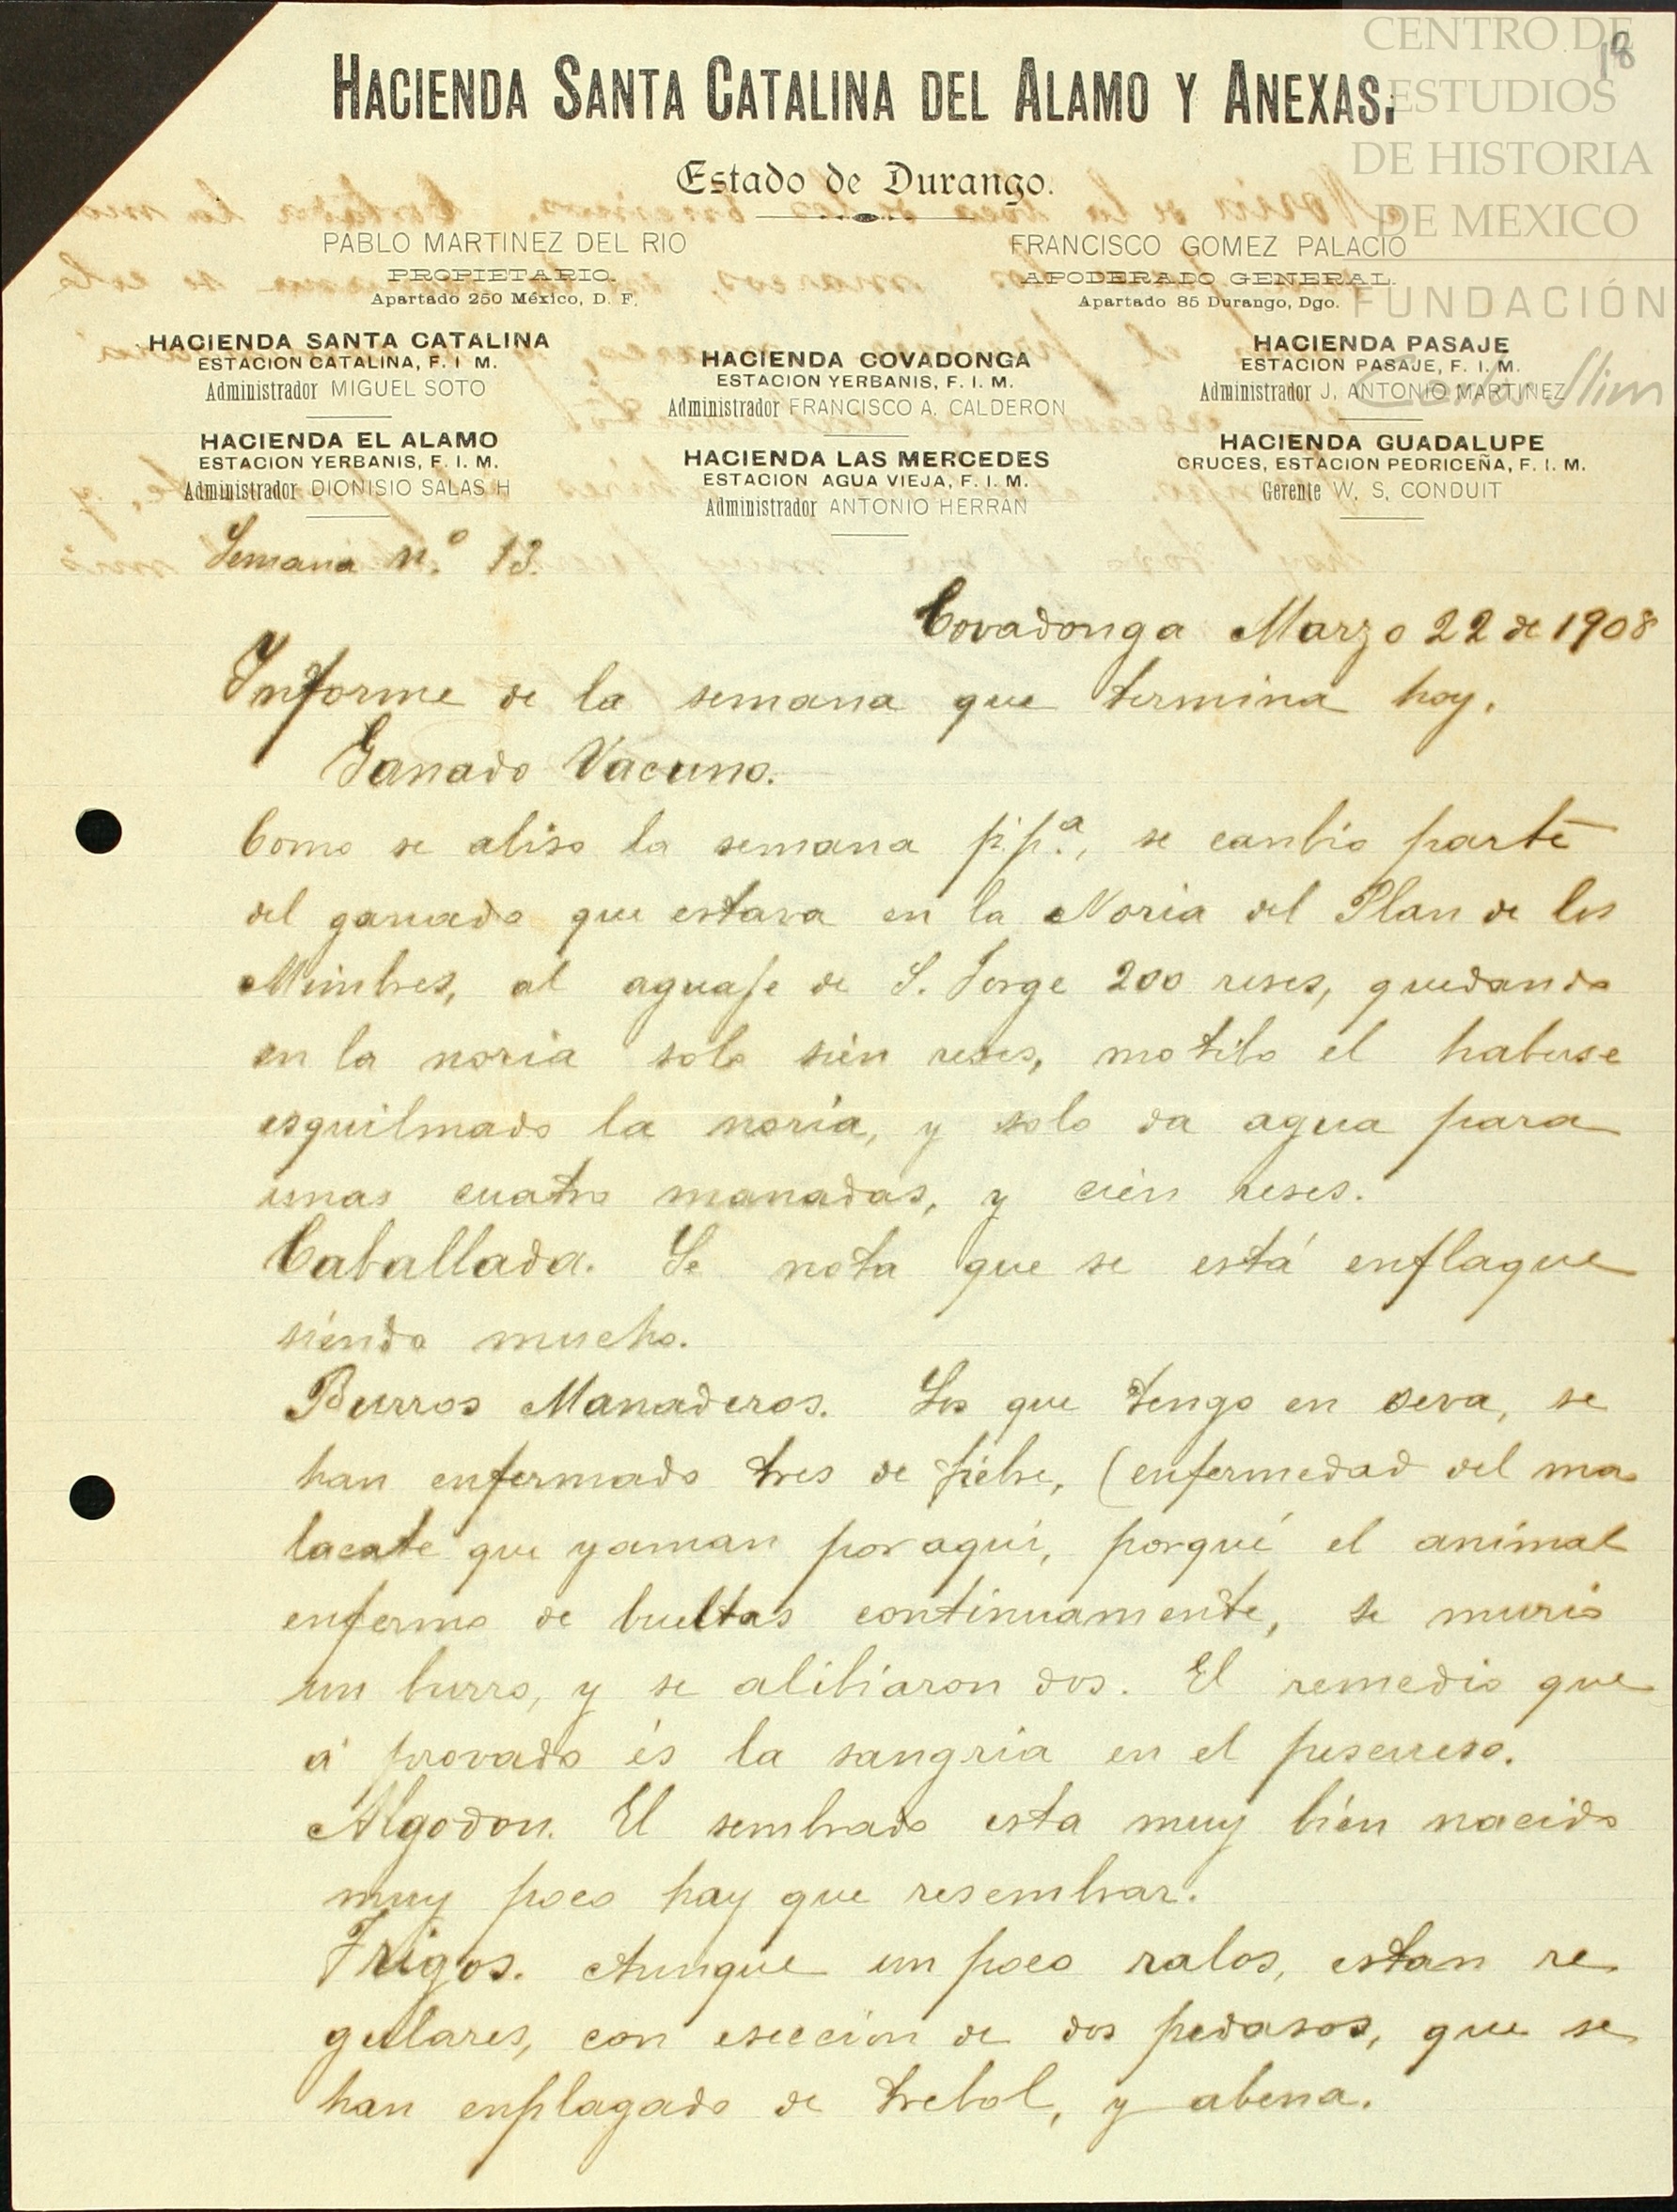 CENTRO DE
ESTUDIOS
DE HISTORIA
DE MEXICO
FUNDACIÓN
Carlos Slim
18
HACIENDA SANTA CATALINA DEL ALAMO Y ANEXAS.
Estado de Durango.
PABLO MARTINEZ DEL RIO
PROPIETARIO.
Apartado 250 México, D. F.
FRANCISCO GOMEZ PALACIO
APODERADO GENERAL.
Apartado 85 Durango, Dgo.
HACIENDA SANTA CATALINA
ESTACION CATALINA, F. I. M.
Administrador MIGUEL SOTO
HACIENDA COVADONGA
ESTACION YERBANIS, F. I. M.
Administrador FRANCISCO A. CALDERON
HACIENDA PASAJE
ESTACION PASAJE, F. I. M.
Administrador J. ANTONIO MARTINEZ
HACIENDA EL ALAMO
ESTACION YERBANIS, F. I. M.
Administrador DIONISIO SALAS H
HACIENDA LAS MERCEDES
ESTACION AGUA VIEJA, F. I. M.
Administrador ANTONIO HERRAN
HACIENDA GUADALUPE
CRUCES, ESTACION PEDRICEÑA, F. I. M.
Gerente W. S. CONDUIT
Semana n.º 13.
Covadonga Marzo 22 de 1908
Informe de la semana que termina hoy.
Ganado Vacuno.
Como se abiso la semana p.p.ª, se canbio parte
del ganado que estava en la Noria del Plan de los
Mimbres, al aguaje de S. Jorge 200 reses, quedando
en la noria solo sién reses, motibo el haberse
esquilmado la noria, y solo da agua para
unas cuatro manadas, y cién reses.
Caballada. Se nota que se está enflaque
siéndo mucho.
Burros Manaderos. Los que tengo en seva, se
han enfermado tres de fiebre, (enfermedad del ma
lacate que yaman por aquí, porqué el animal
enfermo de bueltas continuamente, se murio
un burro, y se alibiaron dos. El remedio que
á provado és la sangria en el pescueso.
Algodon. El sembrado esta muy bién nacido
muy poco hay que resembrar.
Trigos. Aunque un poco ralos, estan re
gulares, con esección de dos pedasos, que se
han enplagado de trebol, y abena.